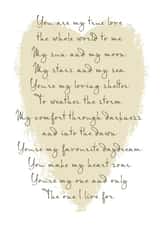 You are my true love
the whole world to me
My sun and my moon
My stars and my sea
You're my loving shelter
To weather the storm
My comfort through darkness
and into the dawn
You're my favourite daydream
You make my heart soar
You're my one and only
The one I live for